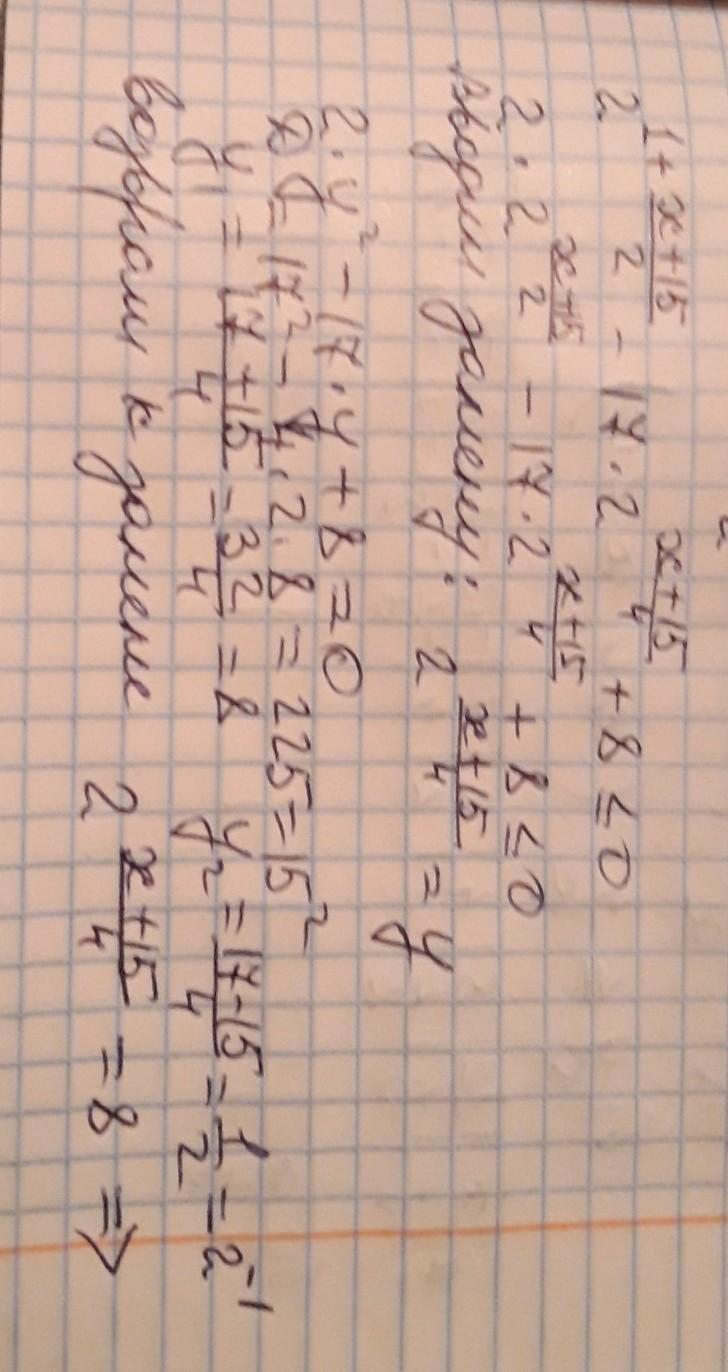 2^{1+\frac{x+15}{2}} - 17 \cdot 2^{\frac{x+15}{4}} + 8 ≤ 0
2 \cdot 2^{\frac{x+15}{2}} - 17 \cdot 2^{\frac{x+15}{4}} + 8 ≤ 0
Вводим замену: 2^{\frac{x+15}{4}} = y
2 \cdot y^2 - 17 \cdot y + 8 = 0
D = 17^2 - 4 \cdot 2 \cdot 8 = 225 = 15^2
y_1 = \frac{17+15}{4} = \frac{32}{4} = 8 y_2 = \frac{17-15}{4} = \frac{1}{2} = 2^{-1}
к замене 2^{\frac{x+15}{4}} = 8 ⇒